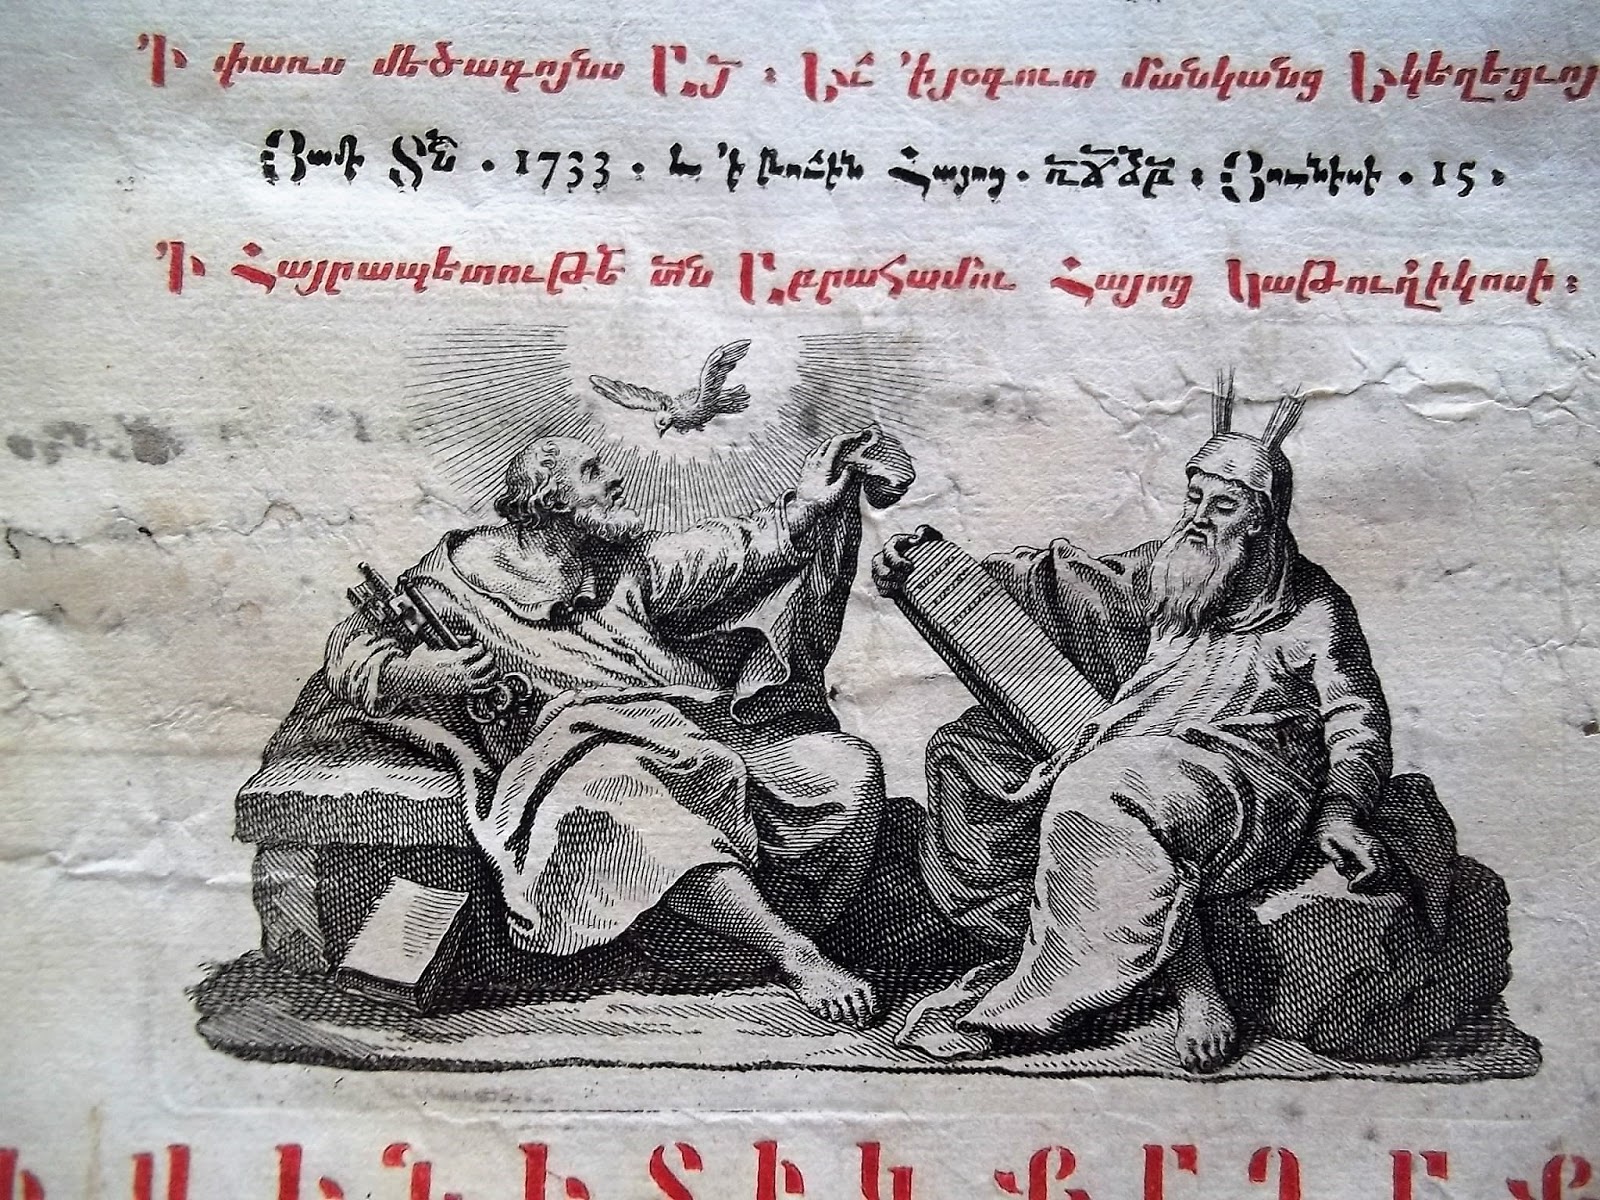 ՚Ի փառս մեծագոյնս ԱՅ ։ Եւ ՚ի յօգուտ մանկանց Եկեղեցւոյ
Յամի Տն . 1733 . և ՚ի թուին Հայոց . ռճձբ ։ Յունիսի . 15 ։
՚Ի Հայրապետութե տն Աբրահամու Հայոց Կաթուղիկոսի ։
Ի ՎԵՆԵՏԻԿ ՔԱՂԱՔ